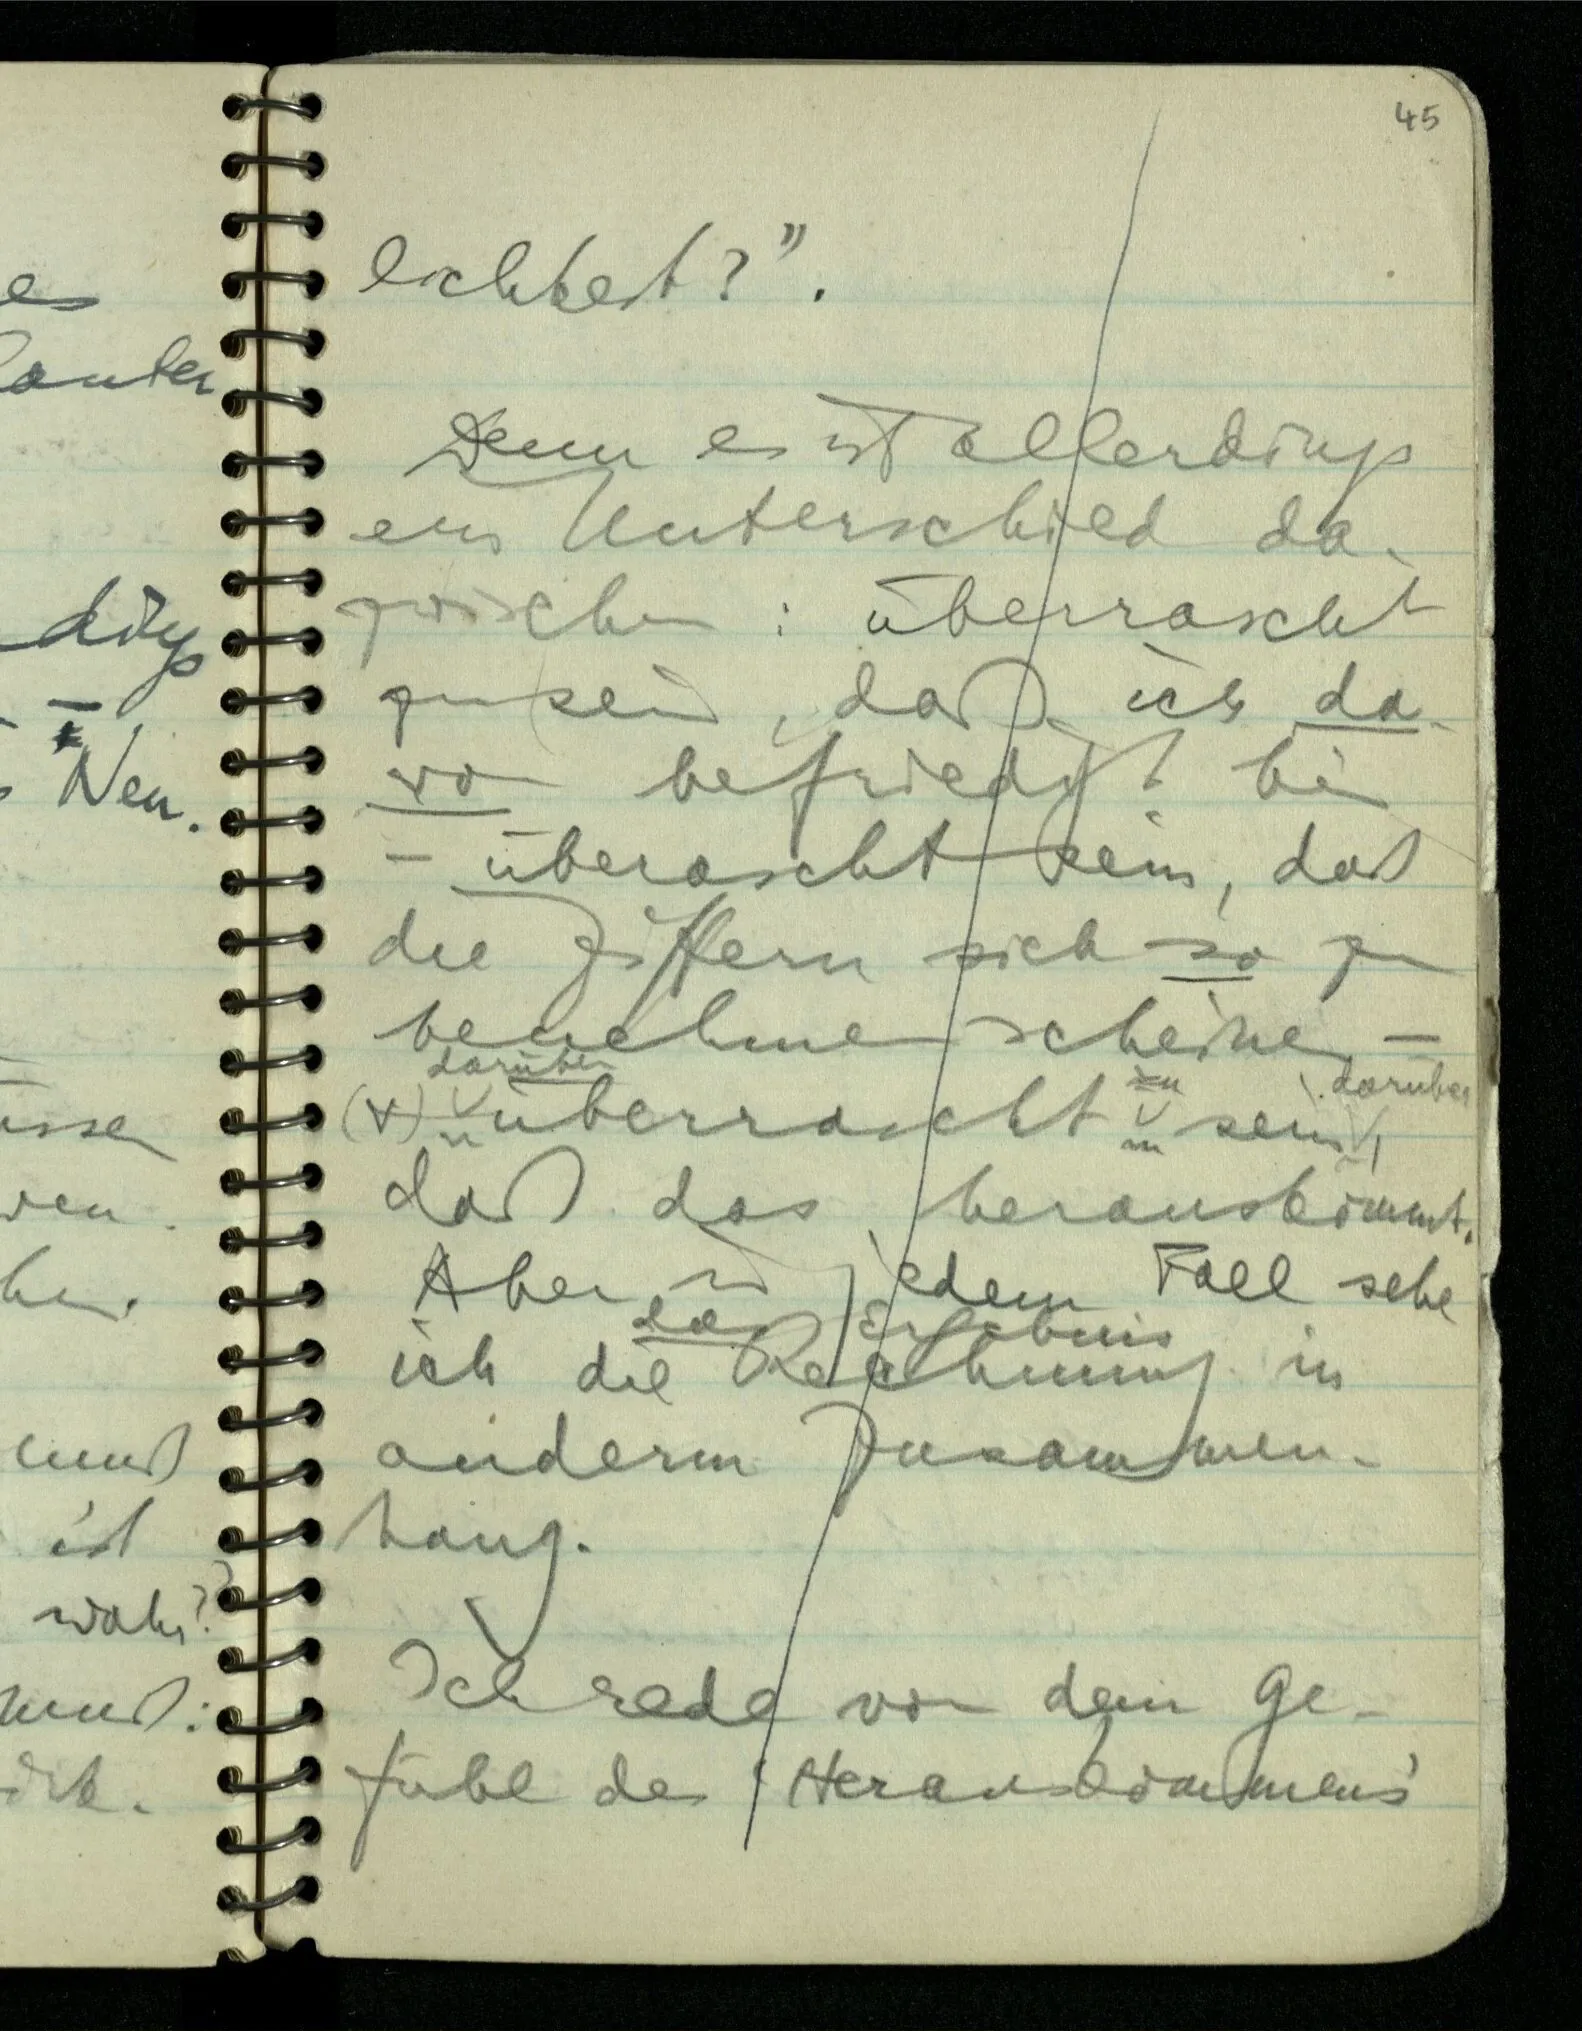 45
es
lauter
lichkeit?".
Denn es ist allerdings
ein Unterschied da-
zwischen: überrascht
zu sein, daß ich da-
von befriedigt bin
– überascht sein, daß
die Ziffern sich so zu
benehmen scheinen –
darüber zu darüber
(x) überrascht sein,
daß das herauskommt.
Aber in jedem Fall sehe
das Ergebnis
ich die Rechnung in
anderm Zusammen-
hang.
Ich rede von dem Ge-
fühl des 'Herauskommens'
dings
Neu.
ist
wahr?